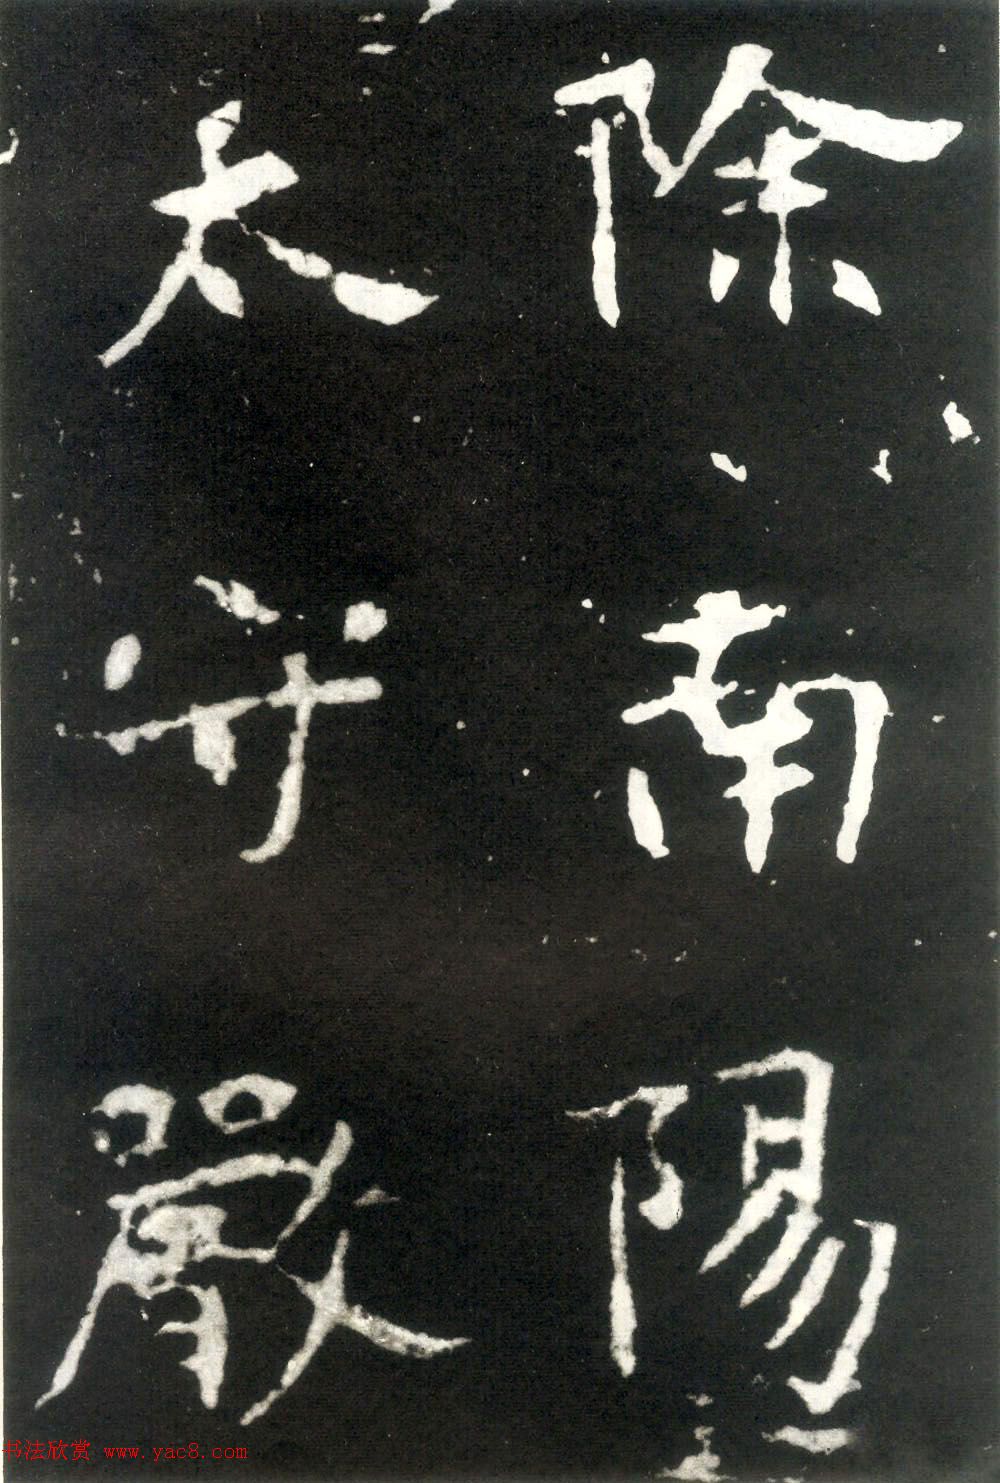 除南陽
太守嚴
书法欣赏 www.yac8.com